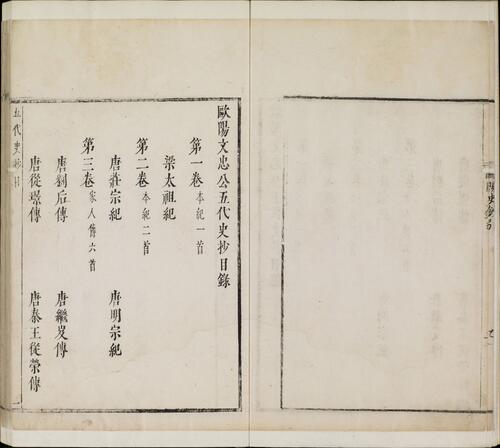 歐陽文忠公五代史抄目錄
第一卷 本紀一首
梁太祖紀
第二卷 本紀二首
唐莊宗紀 唐明宗紀
第三卷 家人傳六首
唐劉后傳 唐繼岌傳
唐從璟傳 唐秦王從榮傳
五代史抄目